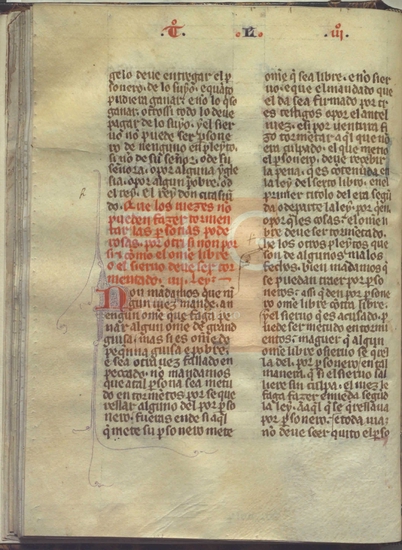 T. II. III.
gelo deue entregar el p
sonero. de lo suyo. equãto
pudiera ganar. e no lo qso
ganar. otrossi todo lo deue
pagar de lo suyo. yel sier
uo no puede ser psone
ro de ninguno en pleyto.
si no de su señor. o de su
señora. o por alguna ygle
sia. o por algun pobre. o d
el rey.
Que los iuezes no
pueden fazer tormen
tar las psonas pode
rosas. por otri si non por
si. e como el ome libre
o el sieruo deue ser tor
mentado. iiij. Ley.
Non mandamos que ni
gun iuez mande. a n
engun ome que faga
nar algun ome de grand
guisa. mas si es ome de
pequenna guisa e pobre.
e sea otra uez fallado en
peccado. no mandamos
que a tal psona sea metu
do en tormetos por se que
rellar alguno del por pso
nero. fueras ende si aql
q mete su psonero mete
ome q sea libre. e no sier
uo. e que el mandado que
el da sea firmado por tr
es testigos o por el ante l
iuez. e si por uentura fi
zo tormetar a aql que no
era culpado. el que metio
el psonero. deue recebir
la pena. q es cotenida en
la ley del serto libro. en el
primer titolo del era segu
da o de parte la ley. por qen.
o por q les cosas. el ome li
bre deue ser tormetado.
he los otros pleytos que
son de algunos malos
fechos. bien madamos q
se puedan traer por pso
neros. assi q den por pso
nero ome libre cotra libre.
yel sieruo que es acusado. p
uede ser metudo en torm
entos. maguer q algun
ome libre o sieruo se que
lla del. por psonero. en tal
manera. q si el sieruo fal
liere sin culpa. el iuez le
faga fazer emieda segud
la ley. a aql q se qrellaua
por psonero. e toda uia
no deue seer quito el pso